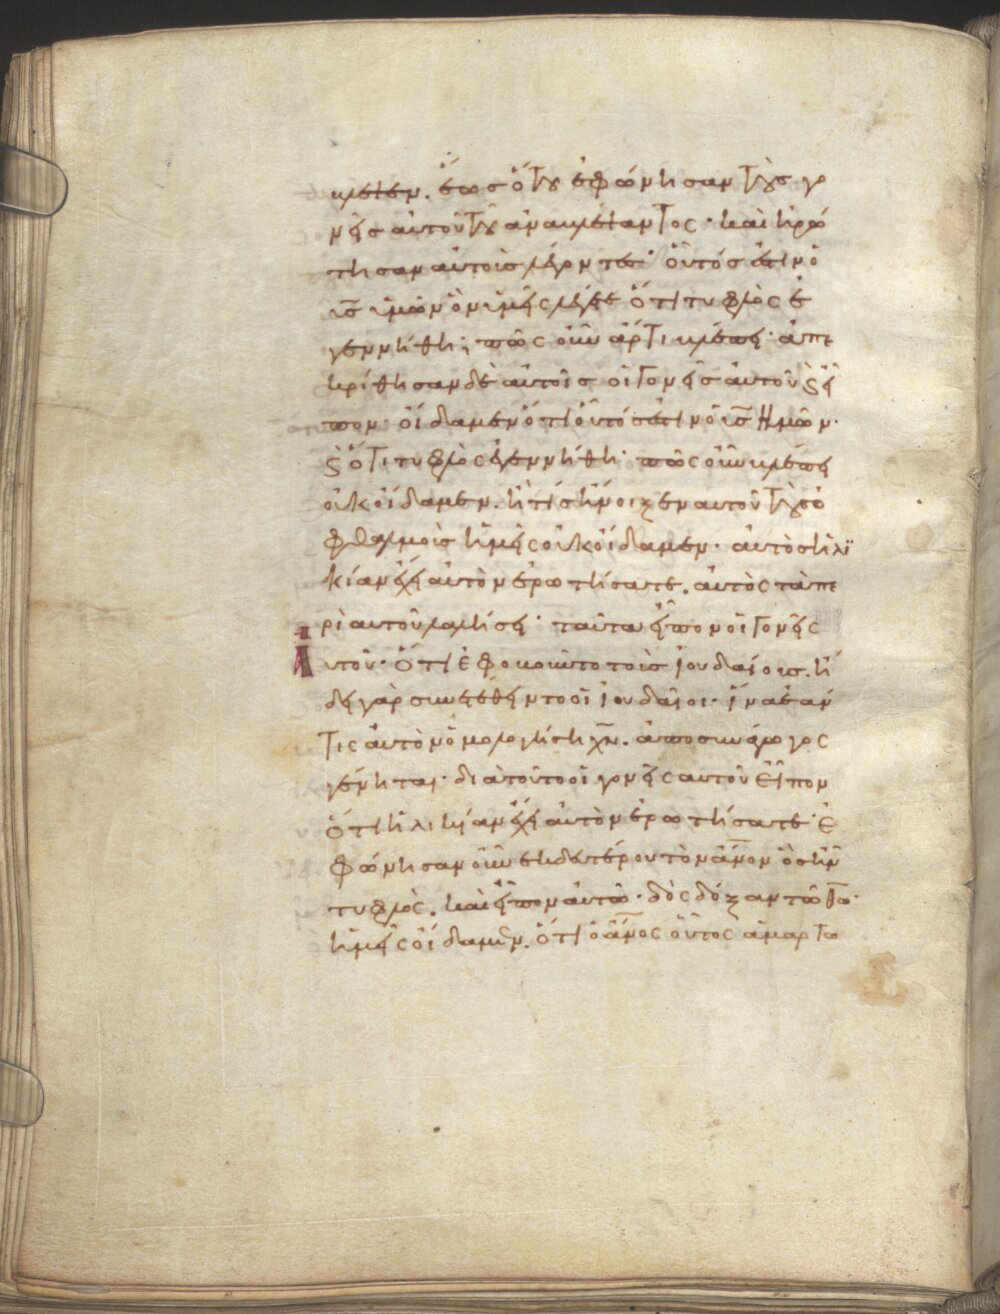 βλεψεν. ἕως ὅτου ἐφώνησαν τοὺς γο
νεῖς αὐτοῦ τοῦ ἀναβλέψαντος· καὶ ἠρώ
τησαν αὐτοὺς λέγοντες· οὗτός ἐστιν ὁ
υἱὸς ὑμῶν ὃν ὑμεῖς λέγετε ὅτι τυφλὸς ἐ
γεννήθη; πῶς οὖν ἄρτι βλέπει· ἀπε
κρίθησαν δὲ αὐτοῖς οἱ γονεῖς αὐτοῦ καὶ εἶ
πον· οἴδαμεν ὅτι οὗτός ἐστιν ὁ υἱὸς ἡμῶν·
καὶ ὅτι τυφλὸς ἐγεννήθη· πῶς οὖν βλέπει
οὐκ οἴδαμεν. ἢ τίς ἤνοιξεν αὐτοῦ τοὺς ὀ
φθαλμοὺς ἡμεῖς οὐκ οἴδαμεν· αὐτὸς ἡλι
κίαν ἔχει αὐτὸν ἐρωτήσατε. αὐτὸς τὰ πε
ρὶ αὐτοῦ λαλήσει· ταῦτα εἶπον οἱ γονεῖς
Αὐτοῦ· ὅτι ἐφοβοῦντο τοὺς ἰουδαίους. ἤ
δει γὰρ συνετέθειντο οἱ ἰουδαῖοι· ἵνα ἐάν
τις αὐτὸν ὁμολογήσῃ χν. ἀποσυνάγωγος
γένηται· διὰ τοῦτο οἱ γονεῖς αὐτοῦ εἶπον
ὅτι ἡλικίαν ἔχει αὐτὸν ἐρωτήσατε· ἐ
φώνησαν οὖν ἐκ δευτέρου τὸν ἄνον ὃς ἦν
τυφλὸς. καὶ εἶπον αὐτῷ· δὸς δόξαν τῷ θω·
ἡμεῖς οἴδαμεν. ὅτι ὁ ἄνος οὗτος ἁμαρτω